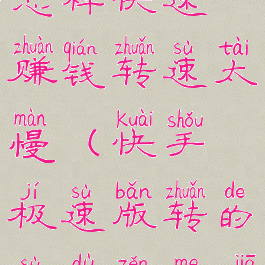 zhuàn qián zhuǎn sù tài
赚钱转速太
màn kuài shǒu
慢（快手
jí sù bǎn zhuǎn de
极速版转的
sù dù zěn me jiā